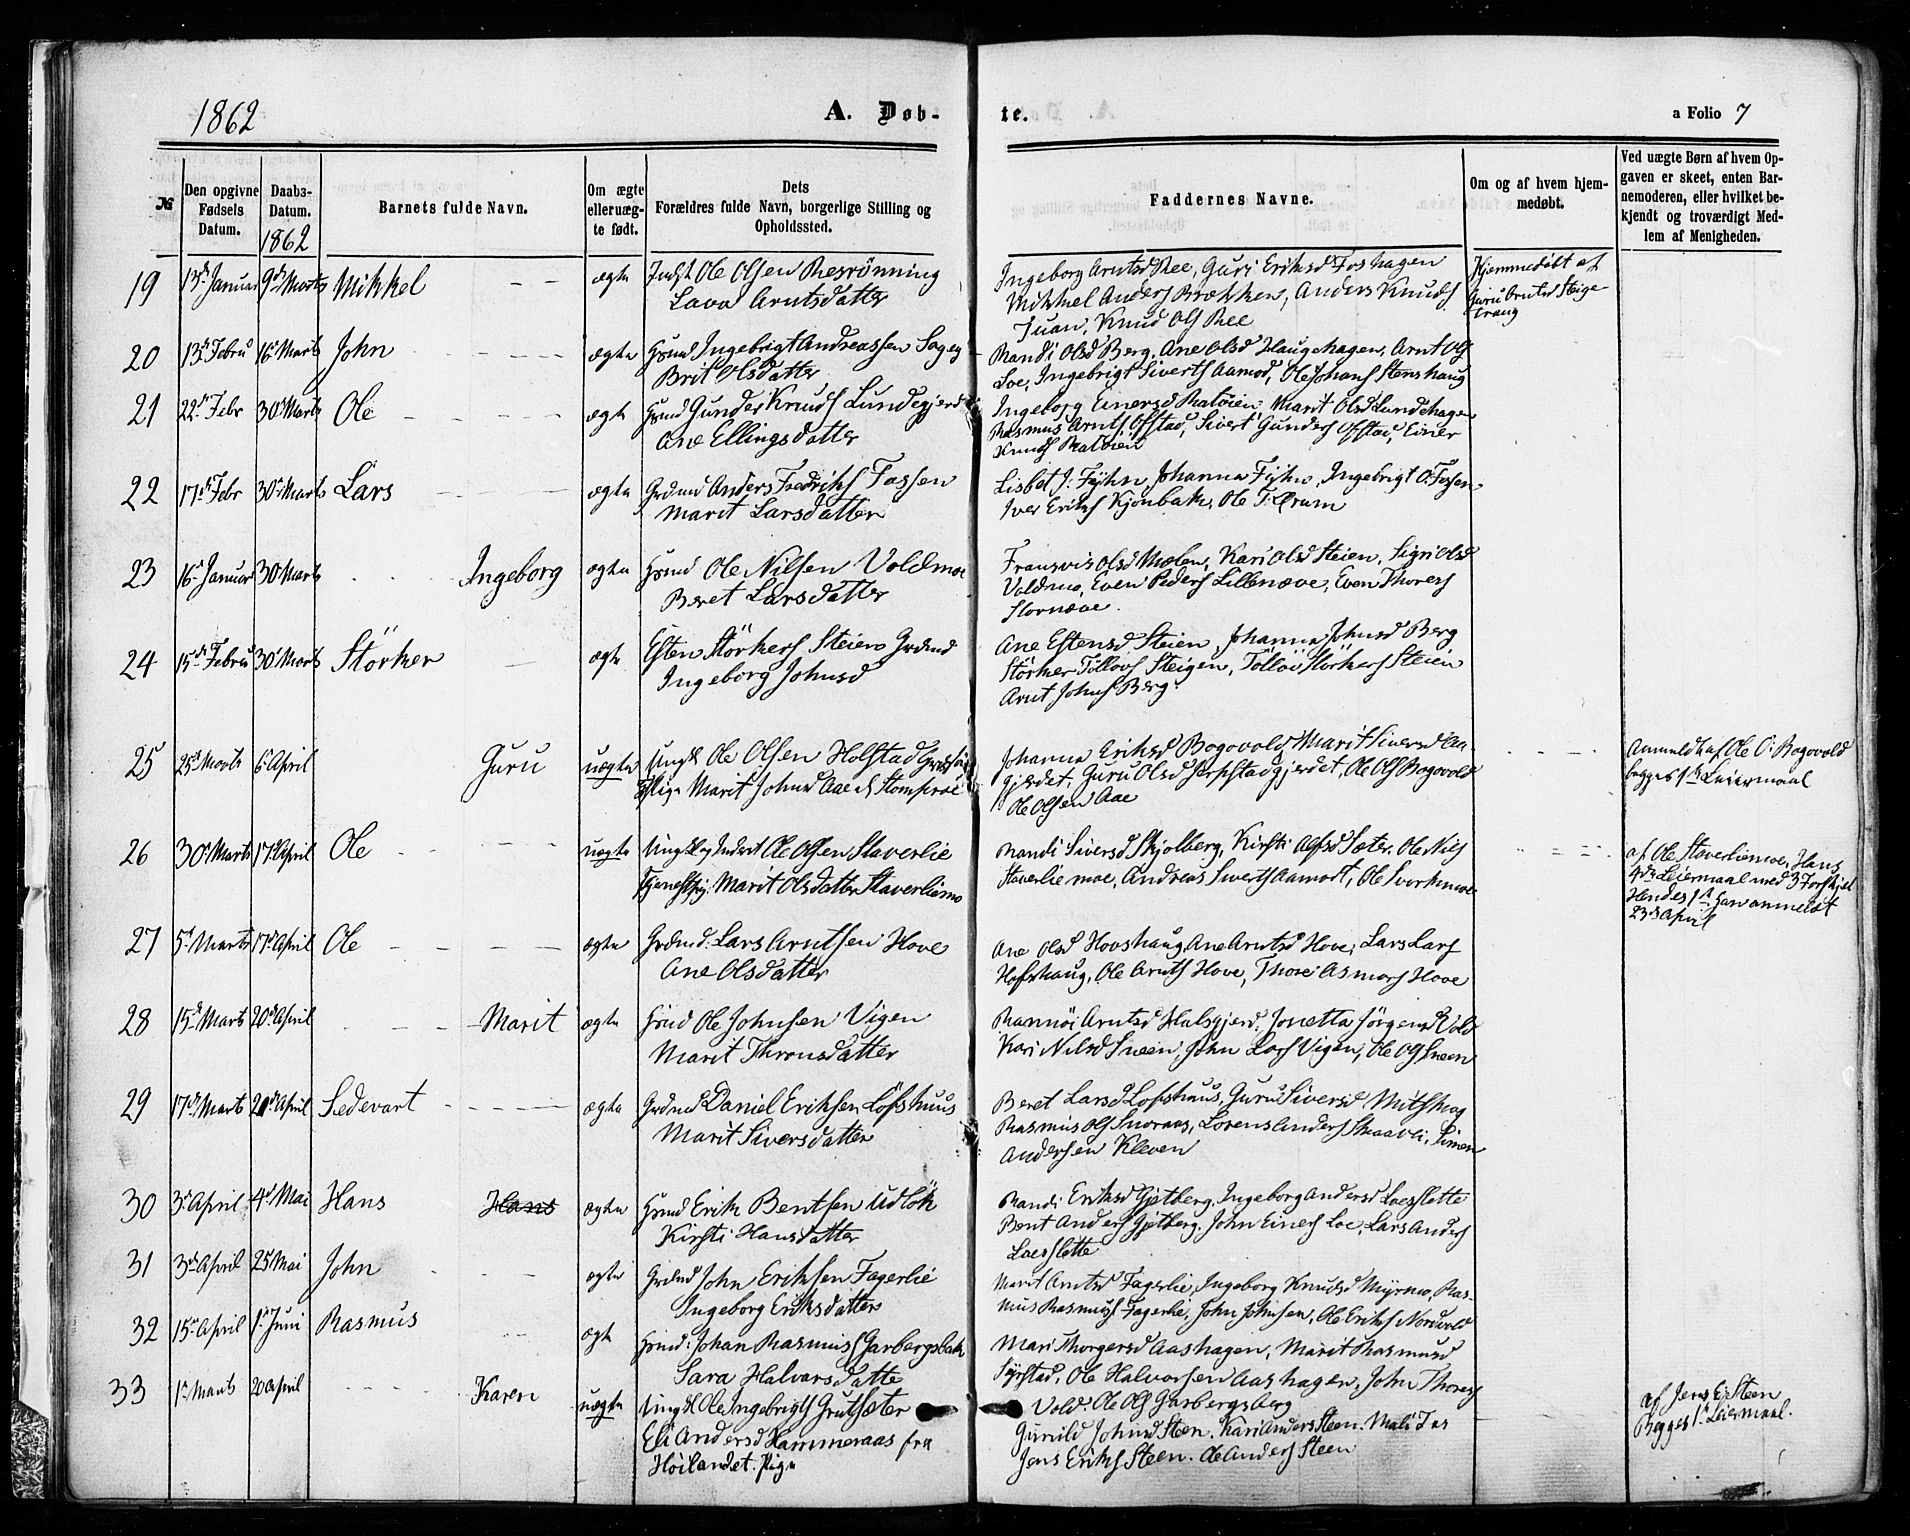 1862
A. Døb-
te.
a Folio 7
№
Den opgivne Fødsels Datum.
Daabs-Datum. 1862
Barnets fulde Navn.
Om ægte eller uæg-te født.
Dets Forældres fulde Navn, borgerlige Stilling og Opholdssted.
Faddernes Navne.
Om og af hvem hjem-medøbt.
Ved uægte Børn af hvem Op-gaven er skeet, enten Bar-nemoderen, eller hvilket be-kjendt og troværdigt Med-lem af Menigheden.
19 13de Januar 9de Marts Mikkel ægte Indst Ole Olsen Resrönning
Lava Arntsdatter
Ingeborg Arntsd Ree, Guri Eriksd Foshagen
Mikkel Anders Brækken, Anders Knuds
Juan, Knud Ols Ree
Hjemmedöbt af
Guru Arntsd Steige-
trang
20 13de Febru 16de Marts John ægte Grdmd Ingebrigt Andreassen
Brit Olsdatter
Randi Olsd Berg, Ane Olsd Haugehagen, Arnt Ols
Loe, Ingebrigt Siverts Aamod, Ole Johans Stenshaug
21 22de Febr 30de Marts Ole ægte Grdmd Gunder Knuds Lundegjerd
Ane Ellingsdatter
Ingeborg Einersd Ratöien, Marit Olsd Lundehagen
Rasmus Arnts Ofstad, Sivert Gunders Ofstad, Einer
Knuds Ratöien
22 17de Febr 30de Marts Lars ægte Grdmd Anders Fredriks Fossen
Marit Larsdatter
Lisbet J: Fyhn, Johanna Fyhn, Ingebrigt O: Fossen
Iver Eriks Kjönbak, Ole T: Ørum
23 16de Januar 30de Marts Ingeborg ægte Grdmd Ole Nilsen Voldmoe
Beret Larsdatter
Fransvis Olsd Mælen, Kari Olsd Steien, Sigri Olsd
Voldmo, Even Peders Lillenæve, Even Thores
Stornæve.
24 15de Febru 30de Marts Störker ægte Esten Störkers Steien Grdmd
Ingeborg Johnsd
Ane Estensd Steien, Johanna Johnsd Berg
Störker Tollovs Steigen, Tollov Störkers Steien
Arnt Johns Berg.
25 25de Marts 6te April Guru uægte Ungk Ole Olsen Holstad
Pige Marit Johnsd Aae
Johanna Eriksd Bogovold, Marit Siversd Aa-
gjerdet, Guru Olsd Jerpstadgjerdet, Ole Ols Bogovold
Ole Olsen Aae
Anmeldt af Ole O: Bogovold
begges 1ste Leiermaal
26 30de Marts 17de April Ole uægte Ungk og Inderst Ole Olsen Staverlie
Tjenestpig: Marit Olsdatter Staverliemo
Randi Siversd Skjolberg, Kirsti Olsd Sæter, Ole Nils
Staverliemoe, Andreas Siverts Aamodt, Ole Svorkmoe
af Ole Staverliemoe, Hans
4de Leiermaal med 3 Forskjel
Hendes 1ste anmeldt
23de April
27 5te Marts 17de April Ole ægte Grdmd: Lars Arntsen Hove
Ane Olsdatter
Ane Olsd Hovshaug, Ane Arntsd Hove, Lars Lars
Hofshaug, Ole Arnts Hove, Thore Asmors Hove
28 15de Marts 20de April Marit ægte Grmd Ole Johnsen Vigen
Marit Thronsdatter
Rannöi Arntsd Halsgjerd, Jonetta Jörgensd Vold
Kari Nilsd Sneen, John Lars Vigen, Ole Ols Sneen
29 17de Marts 20de April Sedevart ægte Grdmd Daniel Eriksen Löfshuus
Marit Siversdatter
Beret Larsd Lofshuus, Guru Siversd Mitskog
Rasmus Ols Snoraas, Lorens Anders Skaavli, Simen
Andersen Kleven
30 3de April 4de Mai Hans Hans ægte Grdmd Erik Bentsen Udlök
Kirsti Hansdatter
Randi Eriksd Gjetberg, Ingeborg Andersd Loesslette
Bent Anders Gjetberg, John Einers Loe, Lars Anders
Loesslette
31 3de April 25 Mai John ægte Grdmd John Eriksen Fagerlie
Ingeborg Eriksdatter
Marit Arntsd Fagerlie, Ingeborg Knudsd Myrmo, Ras-
mus Rasmus Fagerlie, John Johnsen, Ole Eriks Nordvold
32 15de April 1ste Juni Rasmus ægte Grdmd: Johan Rasmus Garbergsbak
Sara Halvarsdatte
Mari Thorgersd Aashagen, Marit Rasmusd
Syrstad, Ole Halvorsen Aashagen, John Thores
Vold. Ole Ols Garbergsberg
33 1ste Marts 20 April Karen uægte Ungk Ole Ingebrigts Grutsæter
Eli Andersd Hammeraas fra
Höilandet. Pige
Gunild Johnsd Steen. Kari Anders Steen. Mali
Jens Eriks Steen. Ole Anders Steen
af Jens E: Steen
Begges 1ste Leiermaal.